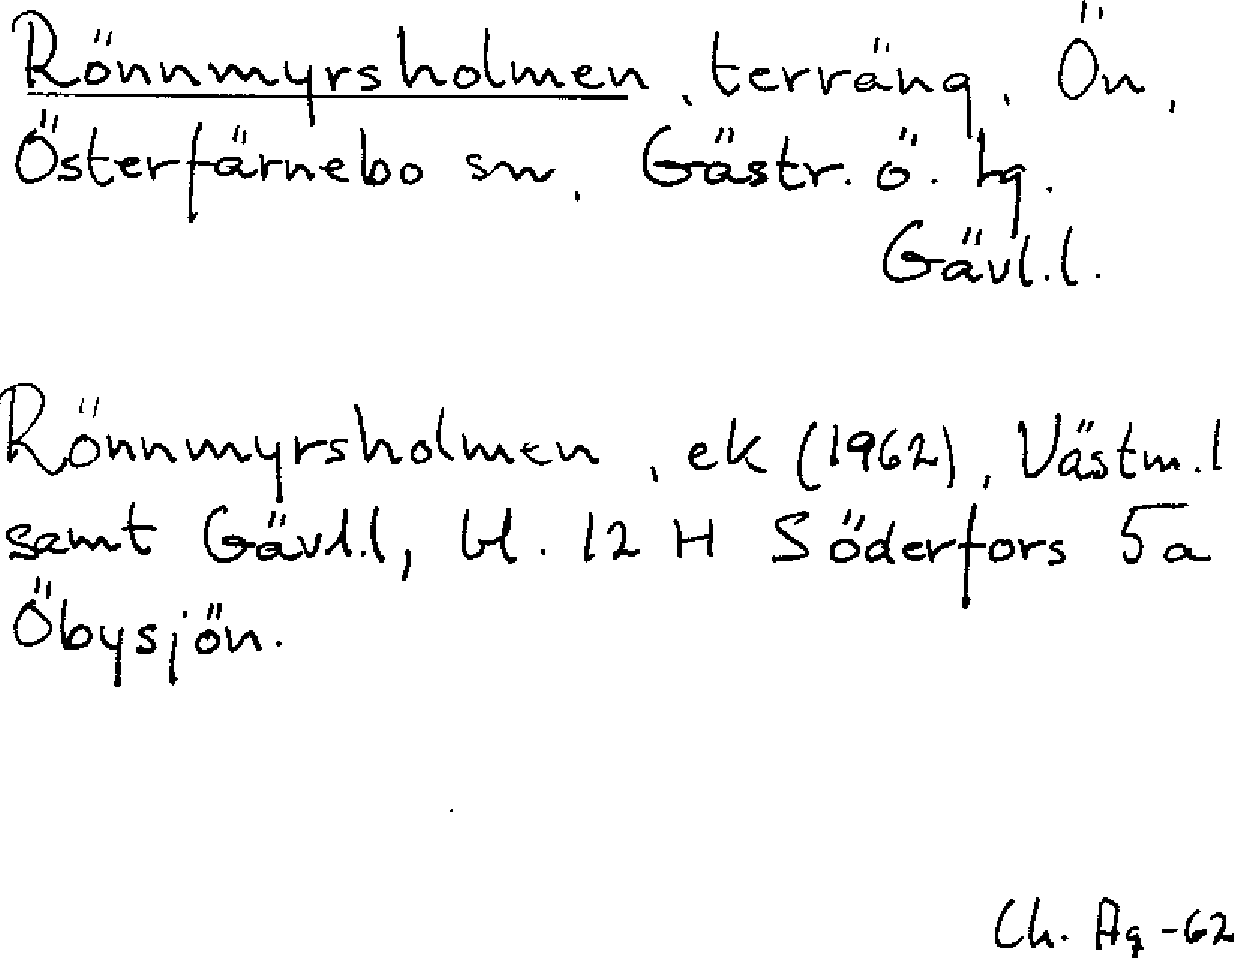 Rönnmyrsholmen, terräng, Ön,
Österfärnebo sn, Gästr. ö. tg.
Gävl.l.
Rönnmyrsholmen, ek (1962), Västm.l
samt Gävl.l, bl. 12 H Söderfors 5a
Öbysjön.
Ch. Ag -62